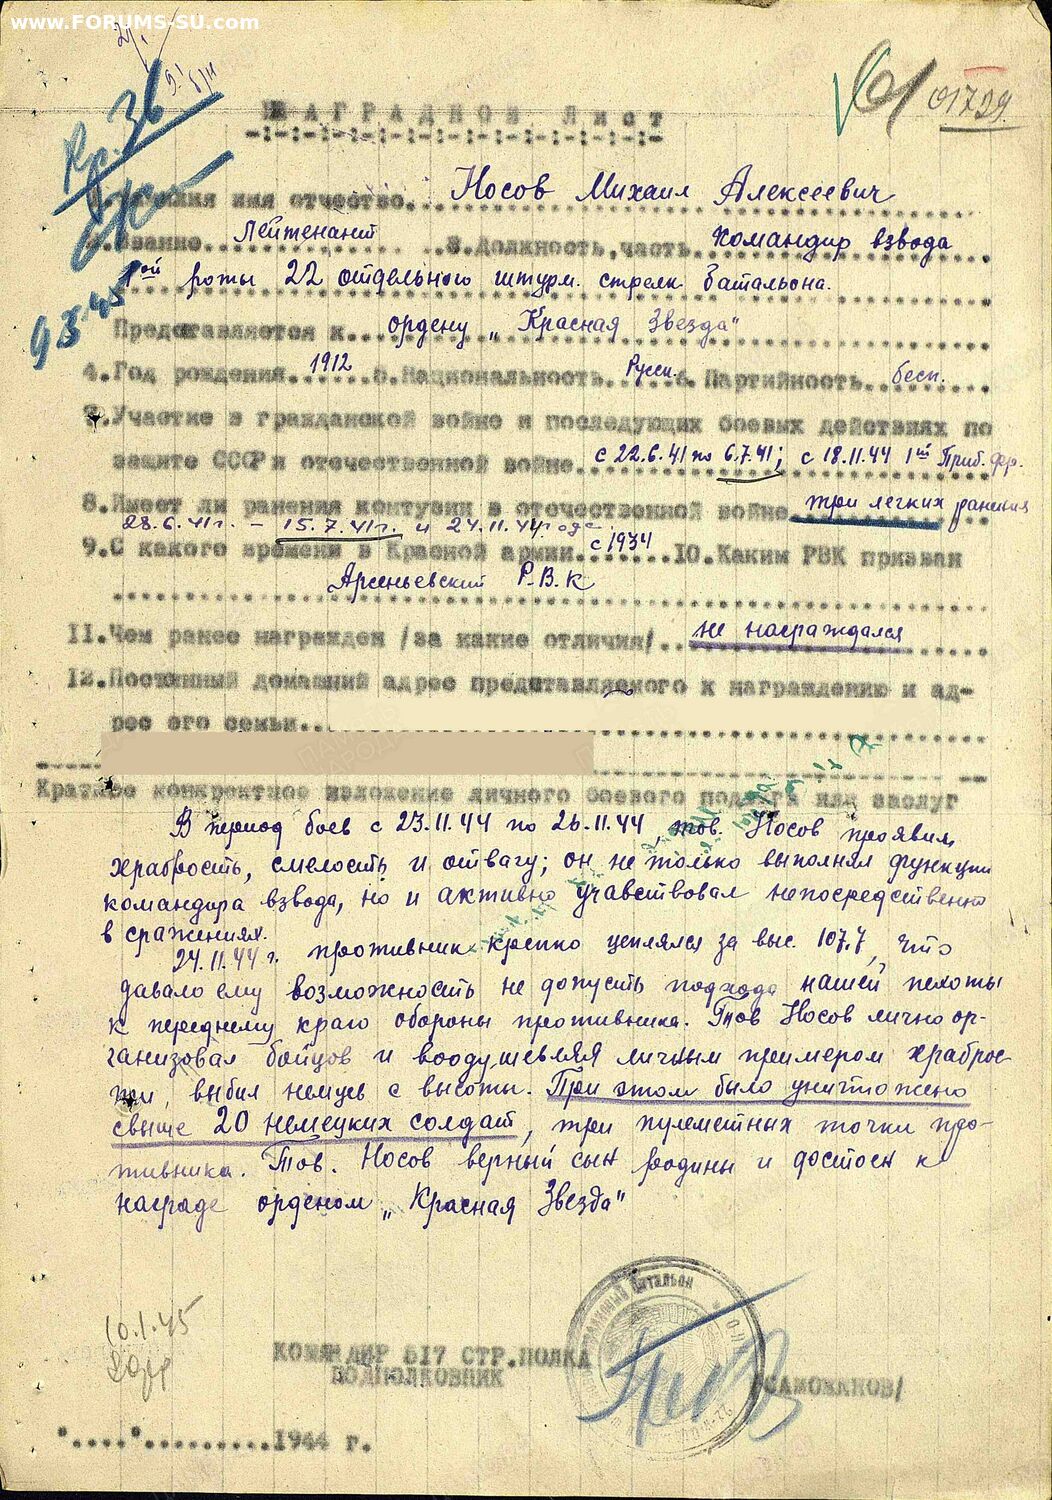 www.FORUMS-SU.com
61 01729
Пр. 36
НАГРАДНОЙ ЛИСТ
1.Фамилия имя отчество Носов Михаил Алексеевич
2.Звание Лейтенант 3.Должность,часть командир взвода
1ой роты 22 отдельного штурм. стрелк. батальона.
Представляется к ордену „Красная Звезда"
4.Год рождения 1912 5.Национальность Русск. 6.Партийность бесп.
7.Участие в гражданской войне и последующих боевых действиях по
защите СССР и отечественной войне с 22.6.41 по 6.7.41; с 18.11.44 1ый Приб. фр.
8.Имеет ли ранения контузии в отечественной войне три легких ранения
28.6.41г. – 15.7.41г. и 24.11.44 года.
9.С какого времени в Красной армии с 1934 10.Каким РВК призван
Арсеньевский Р.В.К
11.Чем ранее награжден /за какие отличия/ не награждался
12.Постоянный домашний адрес представляемого к награждению и ад-
рес его семьи
Краткое конкретное изложение личного боевого подвига или заслуг
В период боев с 23.11.44 по 26.11.44, тов. Носов проявил
храбрость, смелость и отвагу; он не только выполнял функции
командира взвода, но и активно учавствовал непосредственно
в сражениях.
24.11.44 г. противник крепко цеплялся за выс. 107.7, что
давало ему возможность не допусть подхода нашей пехоты
к переднему краю обороны противника. Тов Носов лично ор-
ганизовал бойцов и воодушевляя личным примером храброс-
ти, выбил немцев с высоты. При этом было уничтожено
свыше 20 немецких солдат, три пулеметных точки про-
тивника. Тов. Носов верный сын родины и достоен к
награде орденом „Красная Звезда"
10.1.45
КОМАНДИР 517 СТР.ПОЛКА
ПОДПОЛКОВНИК /САМОЖАНОВ/
батальон
"....".........1944 г.